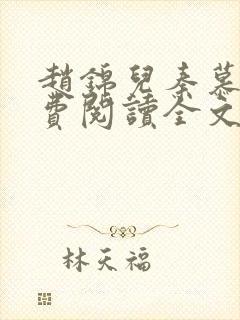 趙錦兒秦慕
費閱讀全文
林天福